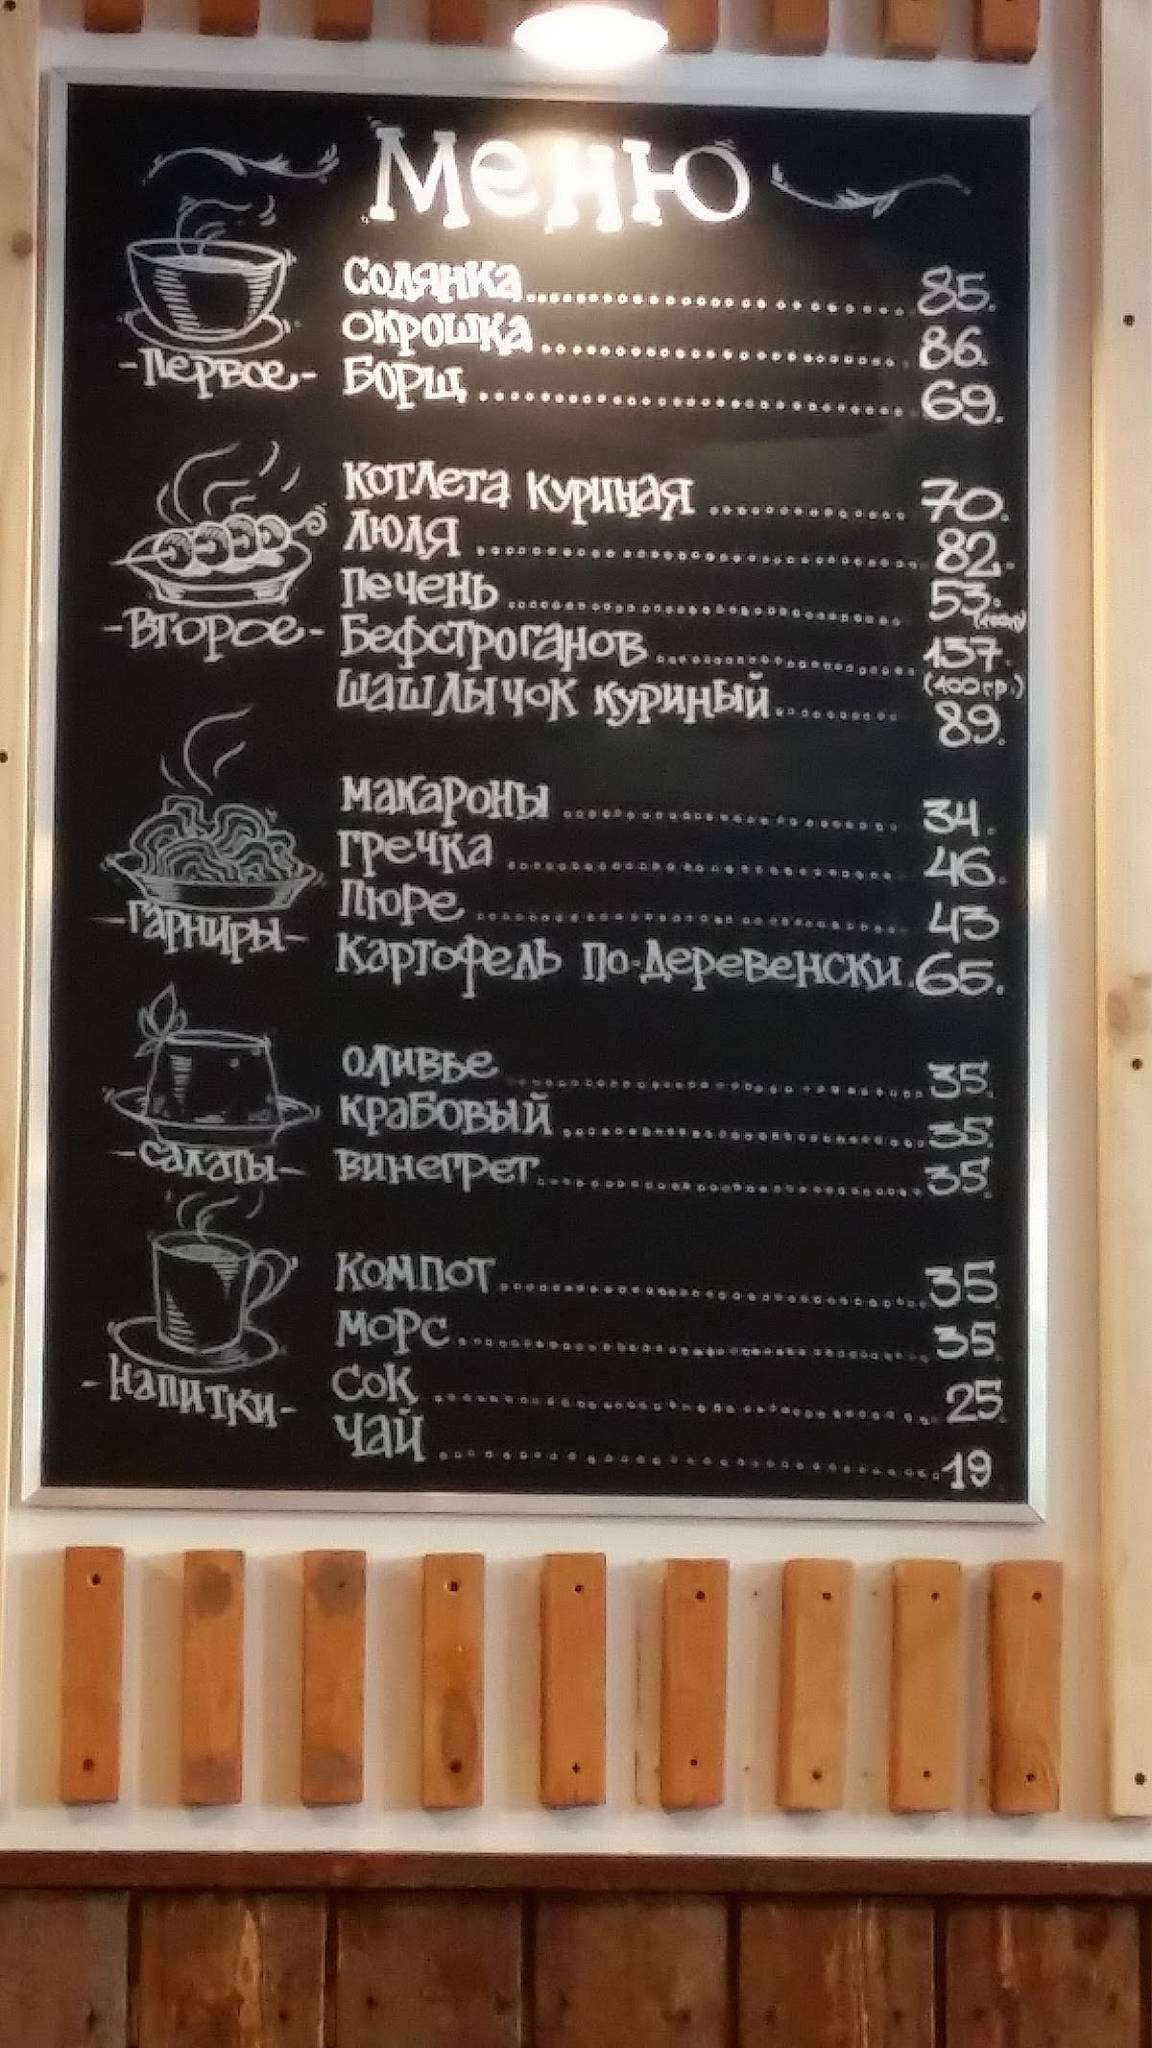 Меню
Солянка 85.
Окрошка 86.
-Первое-
Борщ 69.
Котлета куриная 70.
Люля 82.
Печень 53.
-Второе-
Бефстроганов 137.
(100гр.)
Шашлычок куриный 89.
Макароны 34.
Гречка 46.
Пюре 43
-Гарниры-
Картофель по-деревенски 65.
Оливье 35.
Крабовый 35.
-Салаты-
Винегрет 35.
Компот 35
Морс 35
Сок 25
-Напитки-
Чай 19